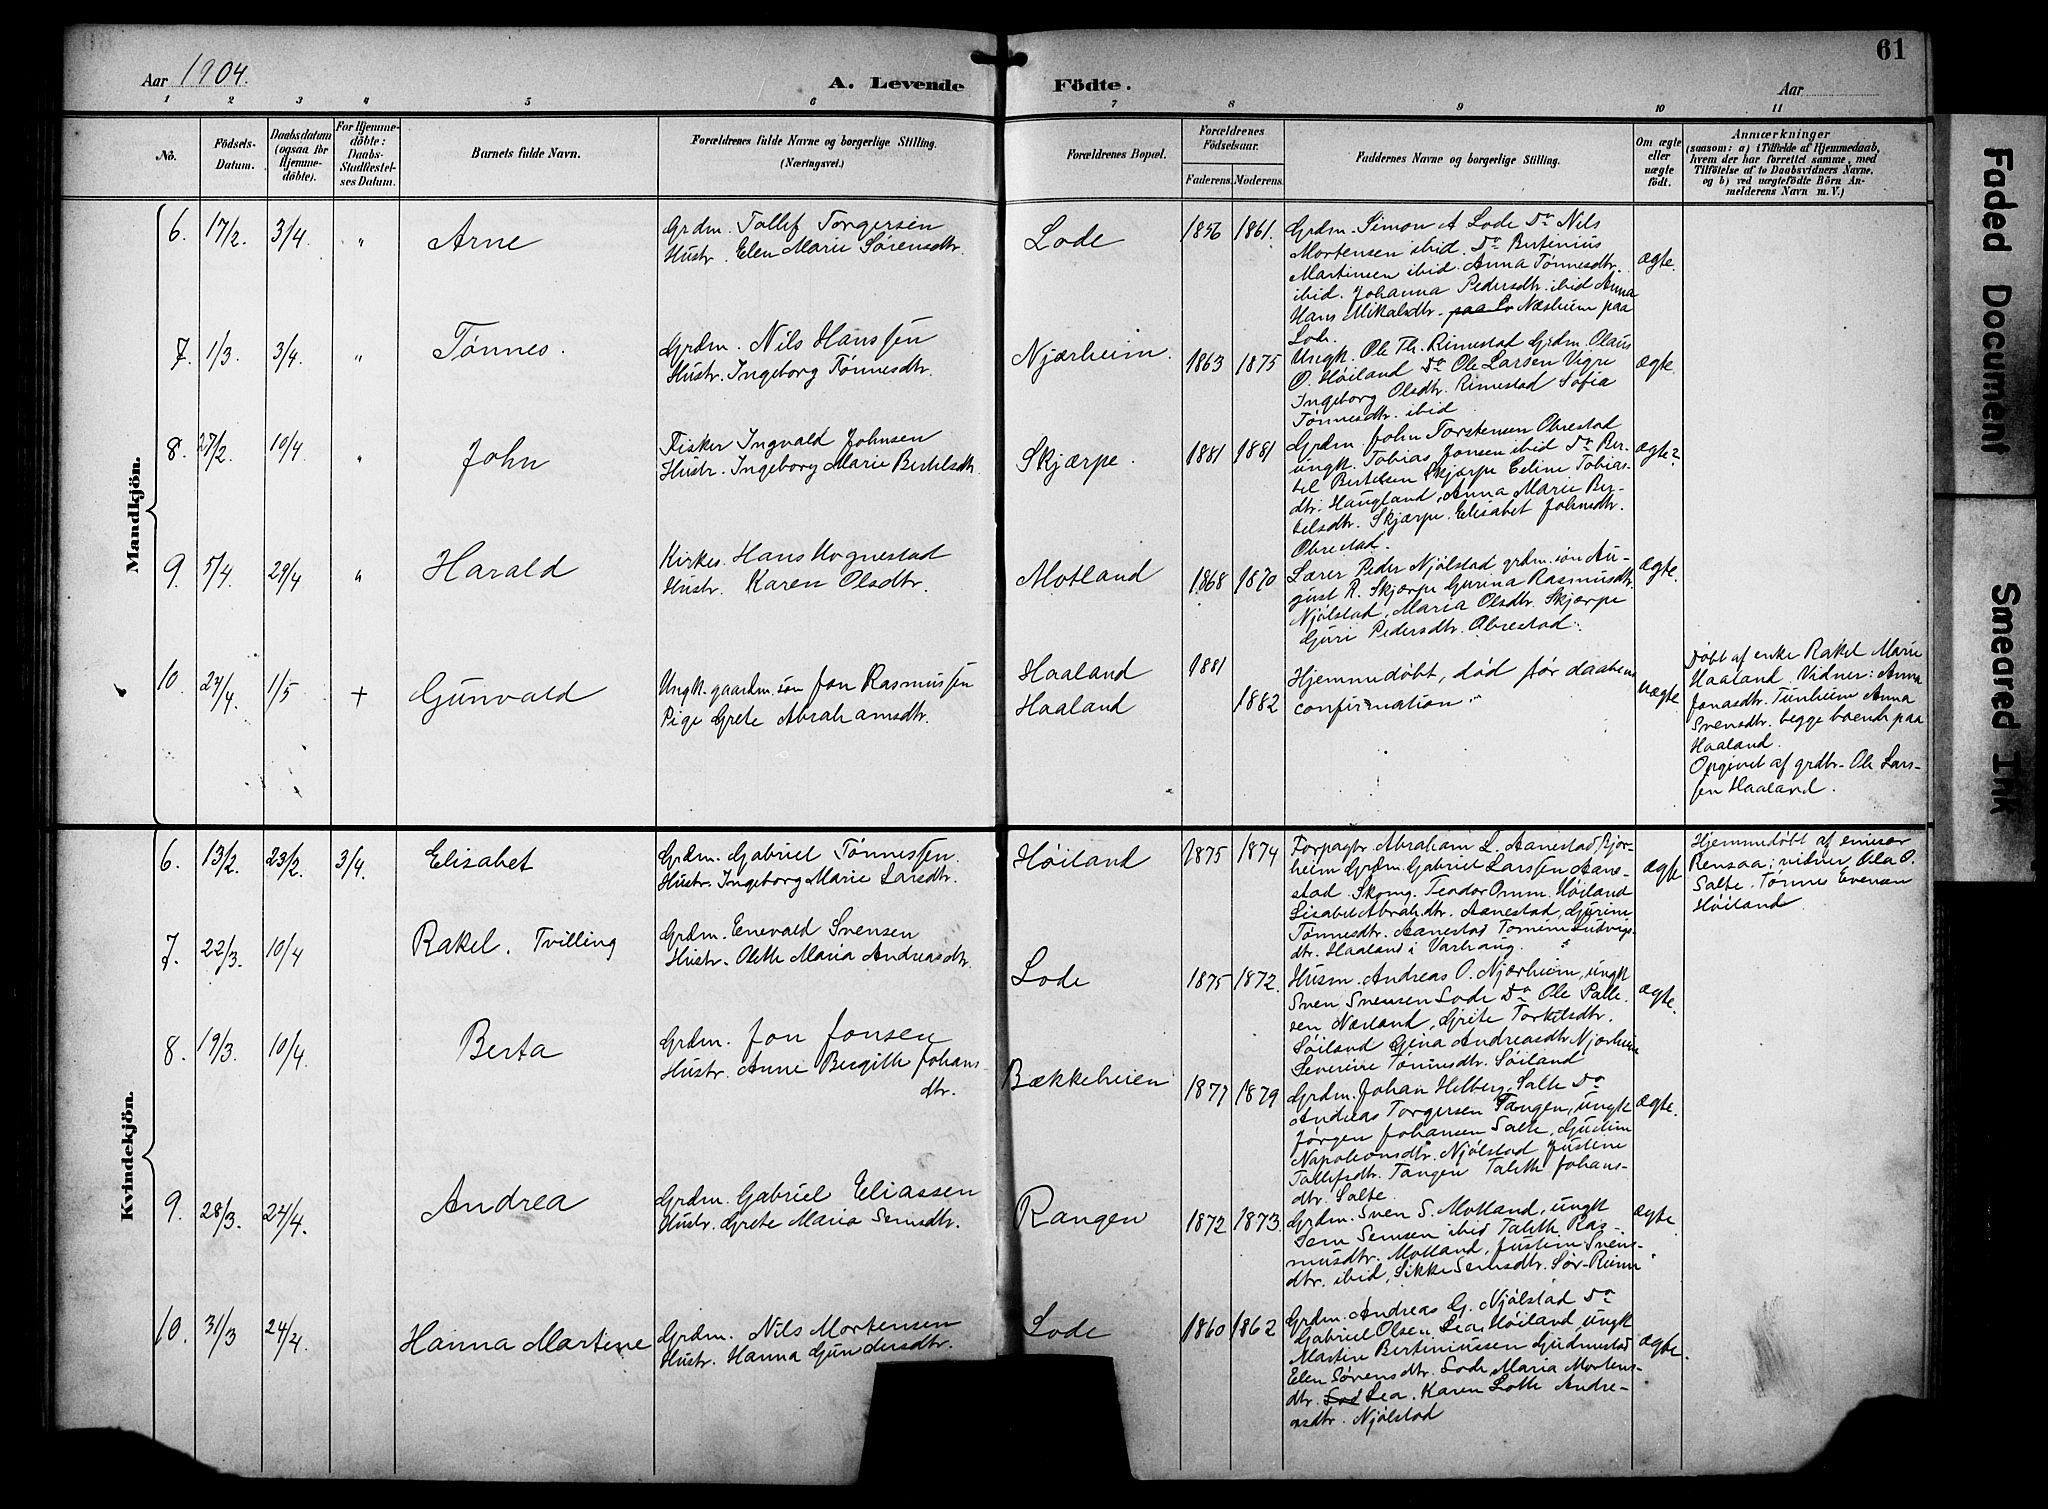 Aar 1904.
A. Levende Födte.
61
Aar
1 2 3 4 5 6 7 8 9 10 11
No.
Födsels-Datum.
Daabsdatum (ogsaa for Hjemme-döbte).
For Hjemme-döbte: Daabs-Stadfæstel-ses Datum.
Barnets fulde Navn.
Forældrenes fulde Navne og borgerlige Stilling. (Næringsvei.)
Forældrenes Bopæl.
Forældrenes Födselsaar.
Faderens. Moderens.
Faddernes Navne og borgerlige Stilling.
Om ægte eller uægte födt.
Anmærkninger
(saasom: a) i Tilfælde af Hjemmedaab,
hvem der har forrettet samme, med
Tilföielse af to Daabsvidners Navne.
og b) ved uægtefödte Börn An-
melderens Navn m. V.)
Mandkjön.
6. 17/2. 3/4. " Arne
Grdm. Tollef Torgersen
Hustr. Elen Marie Sørensdtr.
Lode 1856 1861.
Grdm. Simon A Lode Do Nils
Mortensen ibid. Do Bertinius
Martinsen ibid. Anna Tønnesdtr.
ibid. Johanna Pedersdtr. ibid Anna
Hans Mikalsdtr. paa Lo Næsheim paa
Lode.
ægte.
7. 1/3. 3/4. " Tønnes.
Grdm. Nils Hanssen
Hustr. Ingeborg Tønnesdtr.
Njærheim. 1863 1875
Ungk. Ole Th. Rimestad Grdm. Olaus
O. Høiland Do Ole Larsen Vigre
Ingeborg Olsdtr. Rimestad Sofia
Tønnesdtr. ibid
ægte.
8. 27/2. 10/4. " John
Fisker Ingvald Johnsen
Hustr. Ingeborg Marie Bertelsdtr.
Skjærpe. 1881 1881
Grdm. John Torstensen Obrestad
ungk. Tobias Jonsen ibid Do Ber-
tel Bertelsen Skjærpe Celine Tobias-
dtr. Haugland, Anna Marie Ber-
telsdtr. Skjærpe. Elisabet Johnsdtr.
Obrestad.
ægte?
9. 5/4. 29/4 " Harald
Kirkes. Hans Hognestad
Hustr. Karen Olsdtr.
Motland 1868 1870
Lærer Peder Njølstad grdm. søn Au-
gust R. Skjærpe Gurina Rasmusdtr.
Njølstad, Maria Olsdtr. Skjærpe
Guri Pedersdtr. Obrestad.
ægte.
10. 24/4. 1/5 + Gunvald
Ungk. gaardm. søn Jon Rasmussen
Pige Grete Abrahamsdtr.
Haaland
Haaland
1881
1882
Hjemmedøbt, død før daabens
confirmation"
uægte
Døbt af enke Rakel Marie
Haaland. Vidner: Anna
Jonasdtr. Tunheim Anna
Svensdtr. begge boende paa
Haaland.
Opgivet af grdbr. Ole Lars-
sen Haaland.
Kvindekjön.
6. 13/2. 23/2. 3/4. Elisabet
Grdm. Gabriel Tønnessen.
Hustr. Ingeborg Marie Larsdtr.
Høiland 1875 1874
Forpagtr. Abraham L. Aanestad Njær-
heim Grdm. Gabriel Larssen Aane-
stad Skomg. Teodor Omm. Høiland
Lisabet Abrah.dtr. Aanestad, Gurine
Tønnesdtr. Aanestad Tomine Ludvigs-
dtr. Haaland i Varhaug.
ægte
Hjemmedøbt af emissær
Rensaa; vidner Ola O.
Salte. Tønnes Evensen
Høiland
7. 22/3. 10/4 Rakel. Tvilling
Grdm. Enevald Svensen
Hustr. Olette Maria Andreasdtr.
Lode 1875 1872.
Husm. Andreas O. Njærheim, ungk
Sven Svensen Lode Do Ole Palle-
sen Nærland, Grete Torkelsdtr.
Søiland Gina Andreasdtr. Njærheim
Severine Tønnesdtr. Søiland
ægte.
8. 19/3. 10/4 Berta
Grdm. Jon Jonsen
Hustr. Anne Bergitte Johans-
dtr.
Bækkeheien 1877 1879
Grdm. Johan Helberg, Salte Do
Andreas Torgersen Tangen, ungk
Jørgen Johansen Salte, Gustine
Napoleonsdtr. Njølstad Justine
Tollefsdtr. Tangen Talette Johans-
dtr. Salte.
ægte.
9. 28/3. 24/4. Andrea
Grdm. Gabriel Eliassen
Hustr. Grete Maria Semsdtr.
Rangen 1872 1873.
Grdm. Sven S. Motland, ungk
Sem Semsen ibid Talette Ras-
musdtr. Motland, Justine Svens-
dtr. ibid, Sikke Semsdtr. Sør-Reime
ægte
10. 31/3 24/4. Hanna Martine
Grdm. Nils Mortensen
Hustr. Hanna Gundersdtr.
Lode 1860 1862
Grdm. Andreas G. Njølstad Do
Gabriel Olsen Lea, Høiland, ungk
Martin Bertiniussen Gudmestad
Elen Sørensdtr. Lode Maria Mortens-
dtr. Lod Lea. Karen Lotte Andre-
asdtr. Njølstad
ægte.
Faded Document
Smeared Ink